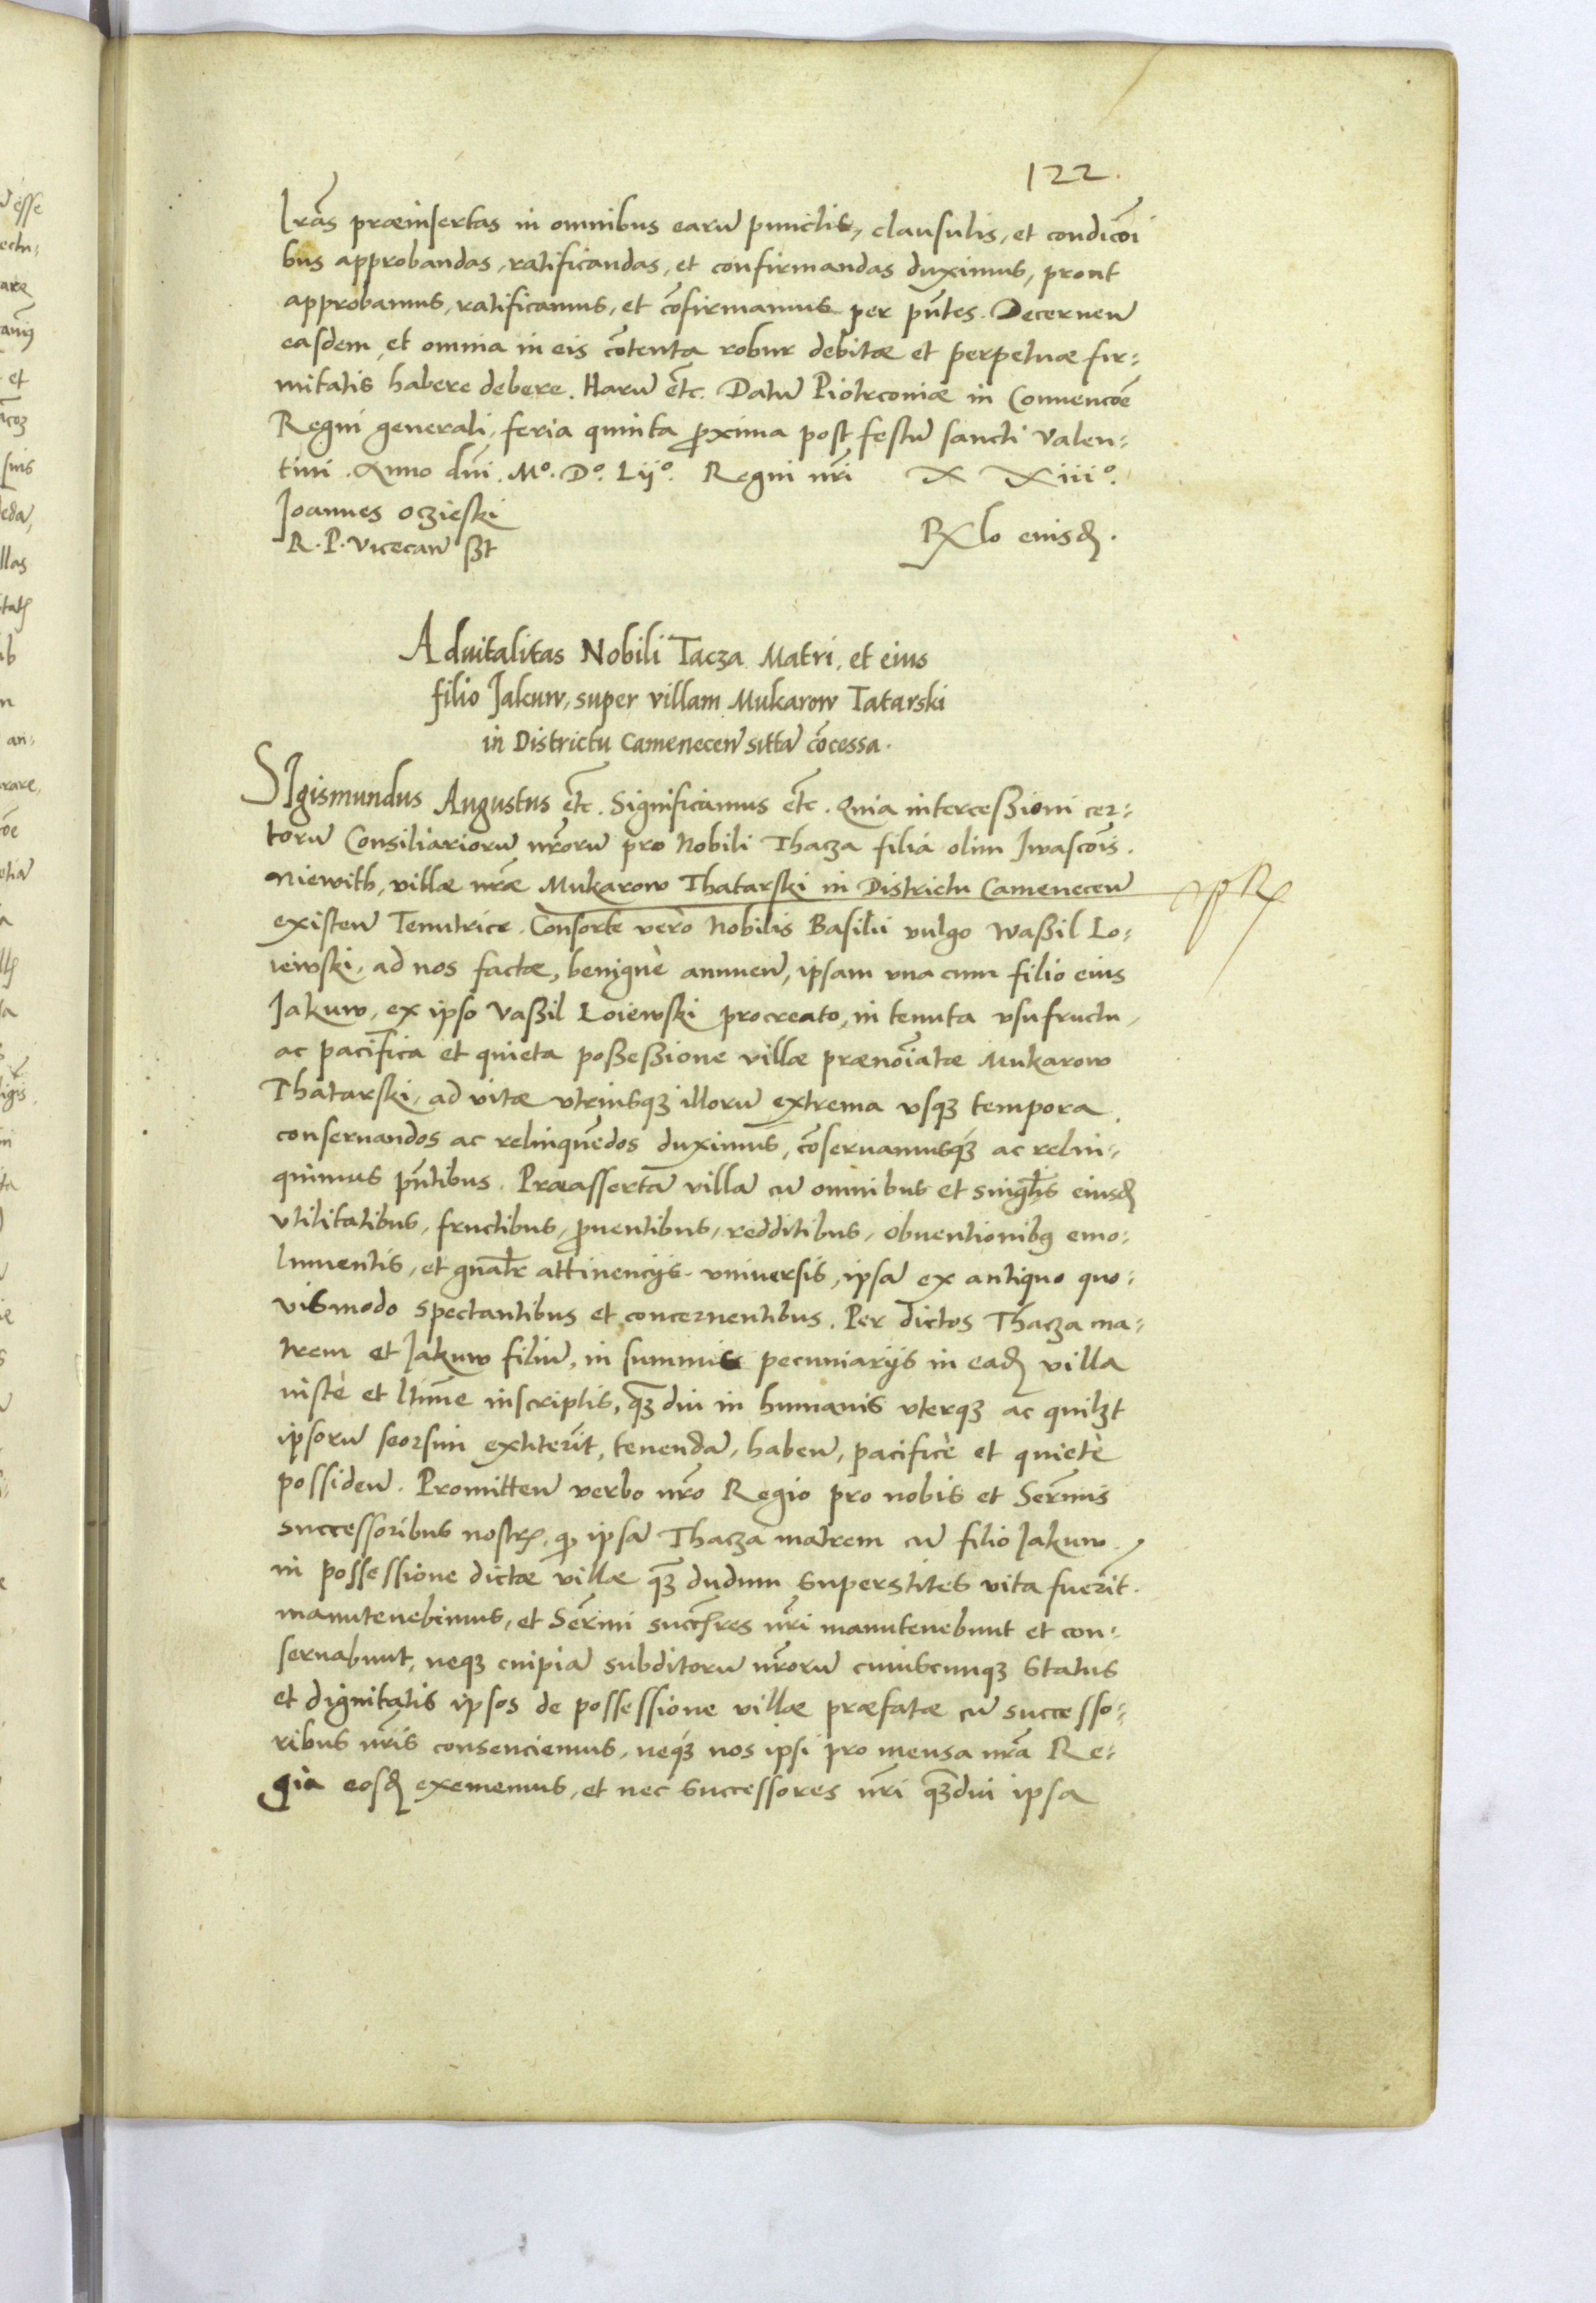 122.
lr̃as præinsertas in omnibus earũ punctis, clausulis, et condicõi
bus approbandas, ratificandas, et confirmandas duximus, prout
approbamus, ratificamus, et cõfirmamus per pñtes. Decerneñ
easdem, et omnia in eis cõtenta robur debitæ et perpetuæ fir-
mitatis habere debere. Harũ etc̃. Datũ Piotrconiæ in Conuencõe
Regni generali, feria quinta proxima post festũ sancti Valen-
tini. Anno dñi. Mº. Dº. Lijº. Regni nr̃i XXiiiº.
Joannes Oczieski
R. P. Vicecañ ßt
Rlo eiusd.
Aduitalitas Nobili Tacza Matri, et eius
filio Jakuw, super villam Mukarow Tatarski
in Districtu Cameneceñ sittã cõcessa.
SIgismundus Augustus etc̃. Significamus etc̃. Quia interceßioni cer-
torũ Consiliariorũ nr̃orũ pro Nobili Thacza filia olim Jwascõis.
Niewith, villæ nr̃æ Mukarow Thatarski in Districtu Cameneceñ
existeñ Tenutrice. Consorte verò Nobilis Basilii vulgo Waßil Lo-
iewski, ad nos factæ, benignè annueñ, ipsam vna cum filio eius
Jakuw, ex ipso Vaßil Loiewski procreato, in tenuta vsufructu,
ac pacifica et quieta poßeßione villæ prænoĩatæ Mukarow
Thatarski, ad vitæ vtriusq; illorũ extrema vsq; tempora
conseruandos ac relinquẽdos duximus, cõseruamusq; ac relin-
quimus pñtibus. Præassertã villã cũ omnibus et singlis eiusd
vtilitatibus, fructibus, prouentibus, redditibus, obuentionibq emo-
lumentis, et gñalr attinencijs vniuersis, ipsã ex antiquo quo-
vismodo spectantibus et concernentibus. Per dictos Thacza ma-
trem et Jakuw filiũ, in summis pecuniarijs in ead villa
iustè et ltim̃e inscriptis, q̃ diu in humanis vterq; ac quilꝫt
ipsorũ seorsim extiterĩt, tenendã, habeñ, pacificè et quietè
possideñ. Promitteñ verbo nr̃o Regio pro nobis et Serm̃is
successoribus nostr, q ipsã Thacza matrem cũ filio Jakuw
in possessione dictæ villæ q̃ dudum superstites vita fuerĩt.
manutenebimus, et Serm̃i succ̃res nr̃i manutenebunt et con-
seruabunt, neq; cuipiã subditorũ nr̃orũ cuiuscunq; status
et dignitatis ipsos de possessione villæ præfatæ cũ successo-
ribus nr̃is consenciemus, neq; nos ipsi pro mensa nr̃a Re-
gia eosd exememus, et nec successores nr̃i q̃diu ipsa